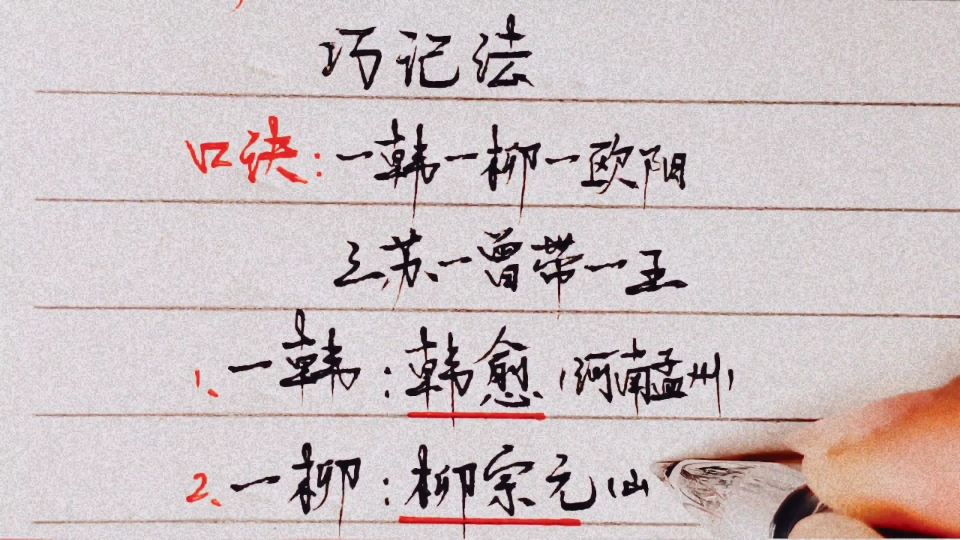 巧记法
口诀:一韩一柳一欧阳
三苏一曾带一王
1、一韩:韩愈(河南孟州)
2、一柳:柳宗元(山